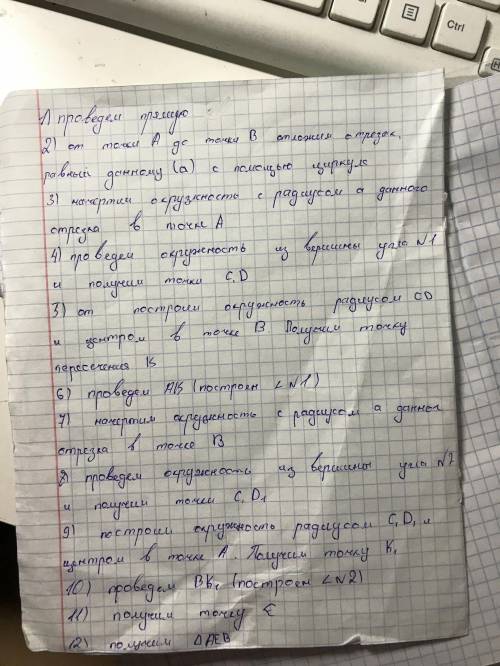 1) проведем прямую
2) от точки А до точки В отложим отрезок,
равный данному (а) с помощью циркуля
3) начертим окружность с радиусом а данного
отрезка в точке А
4) проведем окружность из вершины угла N1
и получим точки C, D
5) от построим окружность радиусом CD
и центром в точке В. Получим точку
пересечения К
6) проведем АК (построен ∠N1)
7) начертим окружность с радиусом а данного
отрезка в точке В
8) проведем окружность из вершины угла N2
и получим точки C, D₁
9) построим окружность радиусом C, D, и
центром в точке А. Получим точку К₁
10) проведем ВК₁ (построен ∠N2)
11) получим точку Е
12) получим ΔAEB
Ctrl